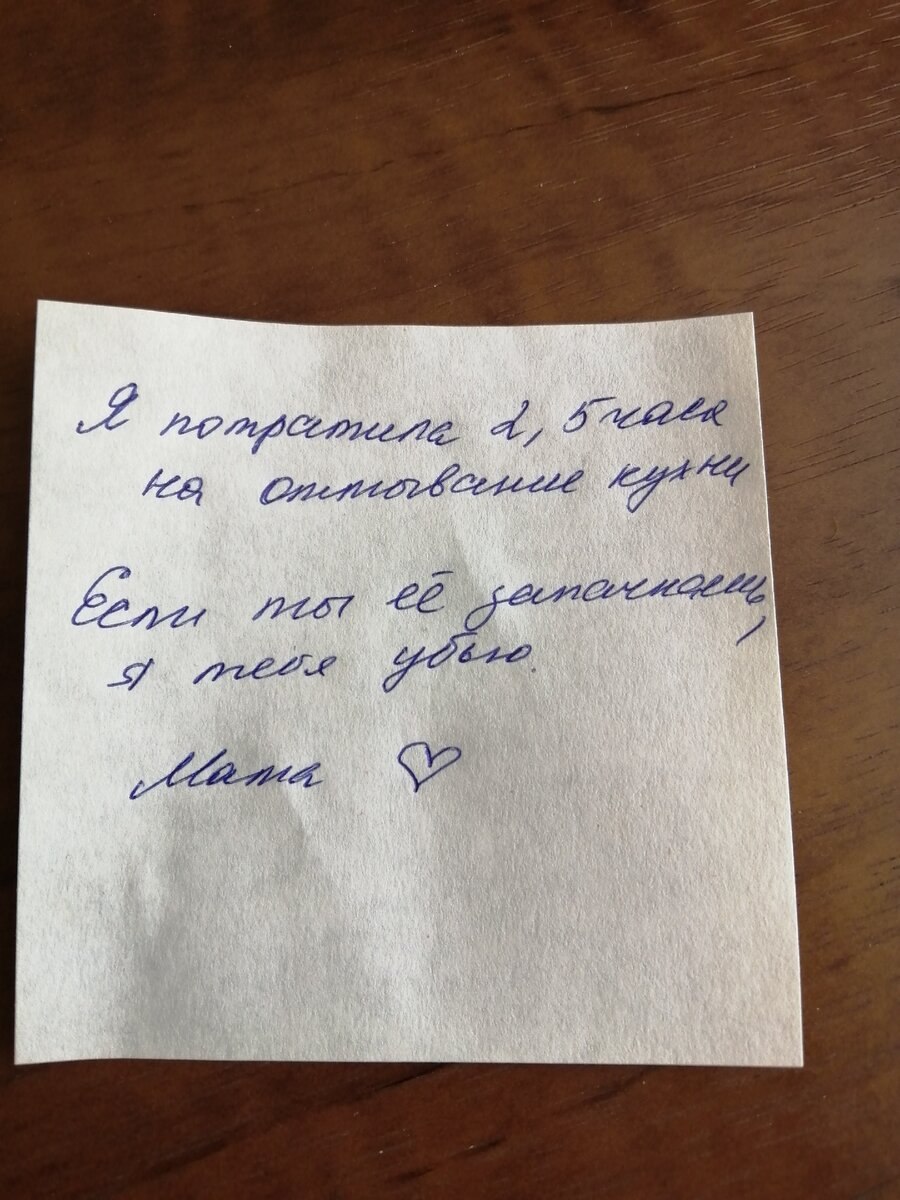 Я потратила 2,5 часа
на отмывание кухни
Если ты её запачкаешь,
я тебя убью.
Мама ♡